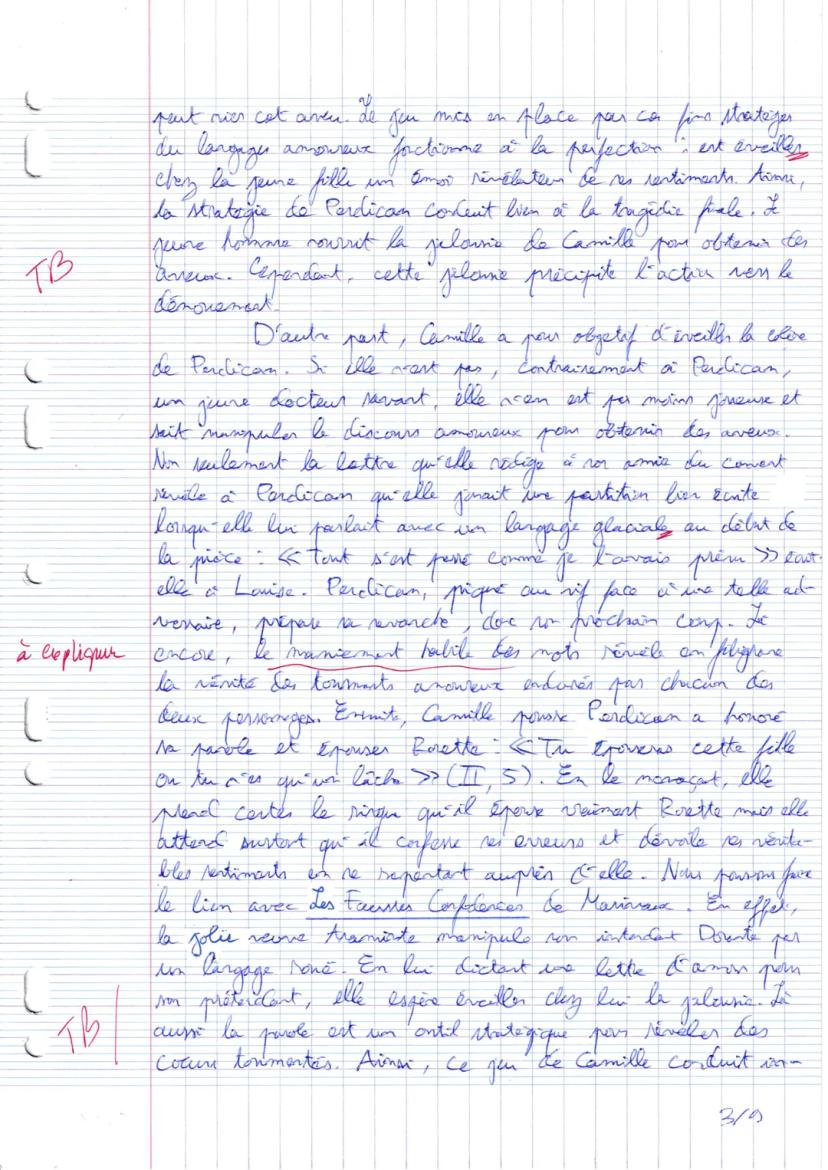 peut nier cet aveu. Le jeu mis en place par ces fins stratèges
du langages amoureux fonctionne à la perfection : est éveillée
chez la jeune fille un émoi révélateur de ses sentiments. Ainsi,
la stratégie de Perdican conduit bien à la tragédie finale. Le
jeune homme nourrit la jalousie de Camille pour obtenir des
TB
aveux. Cependant, cette jalousie précipite l'action vers le
dénouement.
D'autre part, Camille a pour objetif d'éveiller la colère
de Perdican. Si elle n'est pas, contrairement à Perdican,
un jeune docteur savant, elle n'en est pas moins joueuse et
sait manipuler le discours amoureux pour obtenir des aveux.
Non seulement la lettre qu'elle rédige à son amie du couvent
révèle à Perdican qu'elle jouait une partition bien écrite
lorsqu'elle lui parlait avec un langage glaciale au début de
la pièce : « Tout s'est passé comme je l'avais prévu » écrit-
elle à Louise. Perdican, piqué au vif face à une telle ad-
versaire, prépare sa revanche, donc son prochain coup. Là
à expliquer
encore, le maniement habile des mots révèle en filigrane
la vérité des tourments amoureux endurés par chacun des
deux personnages. Ensuite, Camille pousse Perdican a honoré
sa parole et épouser Rosette : « Tu épouseras cette fille
ou tu n'es qu'un lâche » (II, 5). En le menaçat, elle
prend certes le risque qu'il épouse vraiment Rosette mais elle
attend surtout qu'il confesse ses erreurs et dévoile ses vérita-
bles sentiments en se repentant auprès d'elle. Nous pouvons faire
le lien avec Les Fausses Confidences de Marivaux. En effet,
la jolie veuve Araminte manipule son intendant Dorante par
un langage roué. En lui dictant une lettre d'amour pour
son prétendant, elle espère éveiller chez lui la jalousie. Là
TB
aussi la parole est un outil stratégique pour révéler des
coeurs tourmentés. Ainsi, ce jeu de Camille conduit iné-
3/9